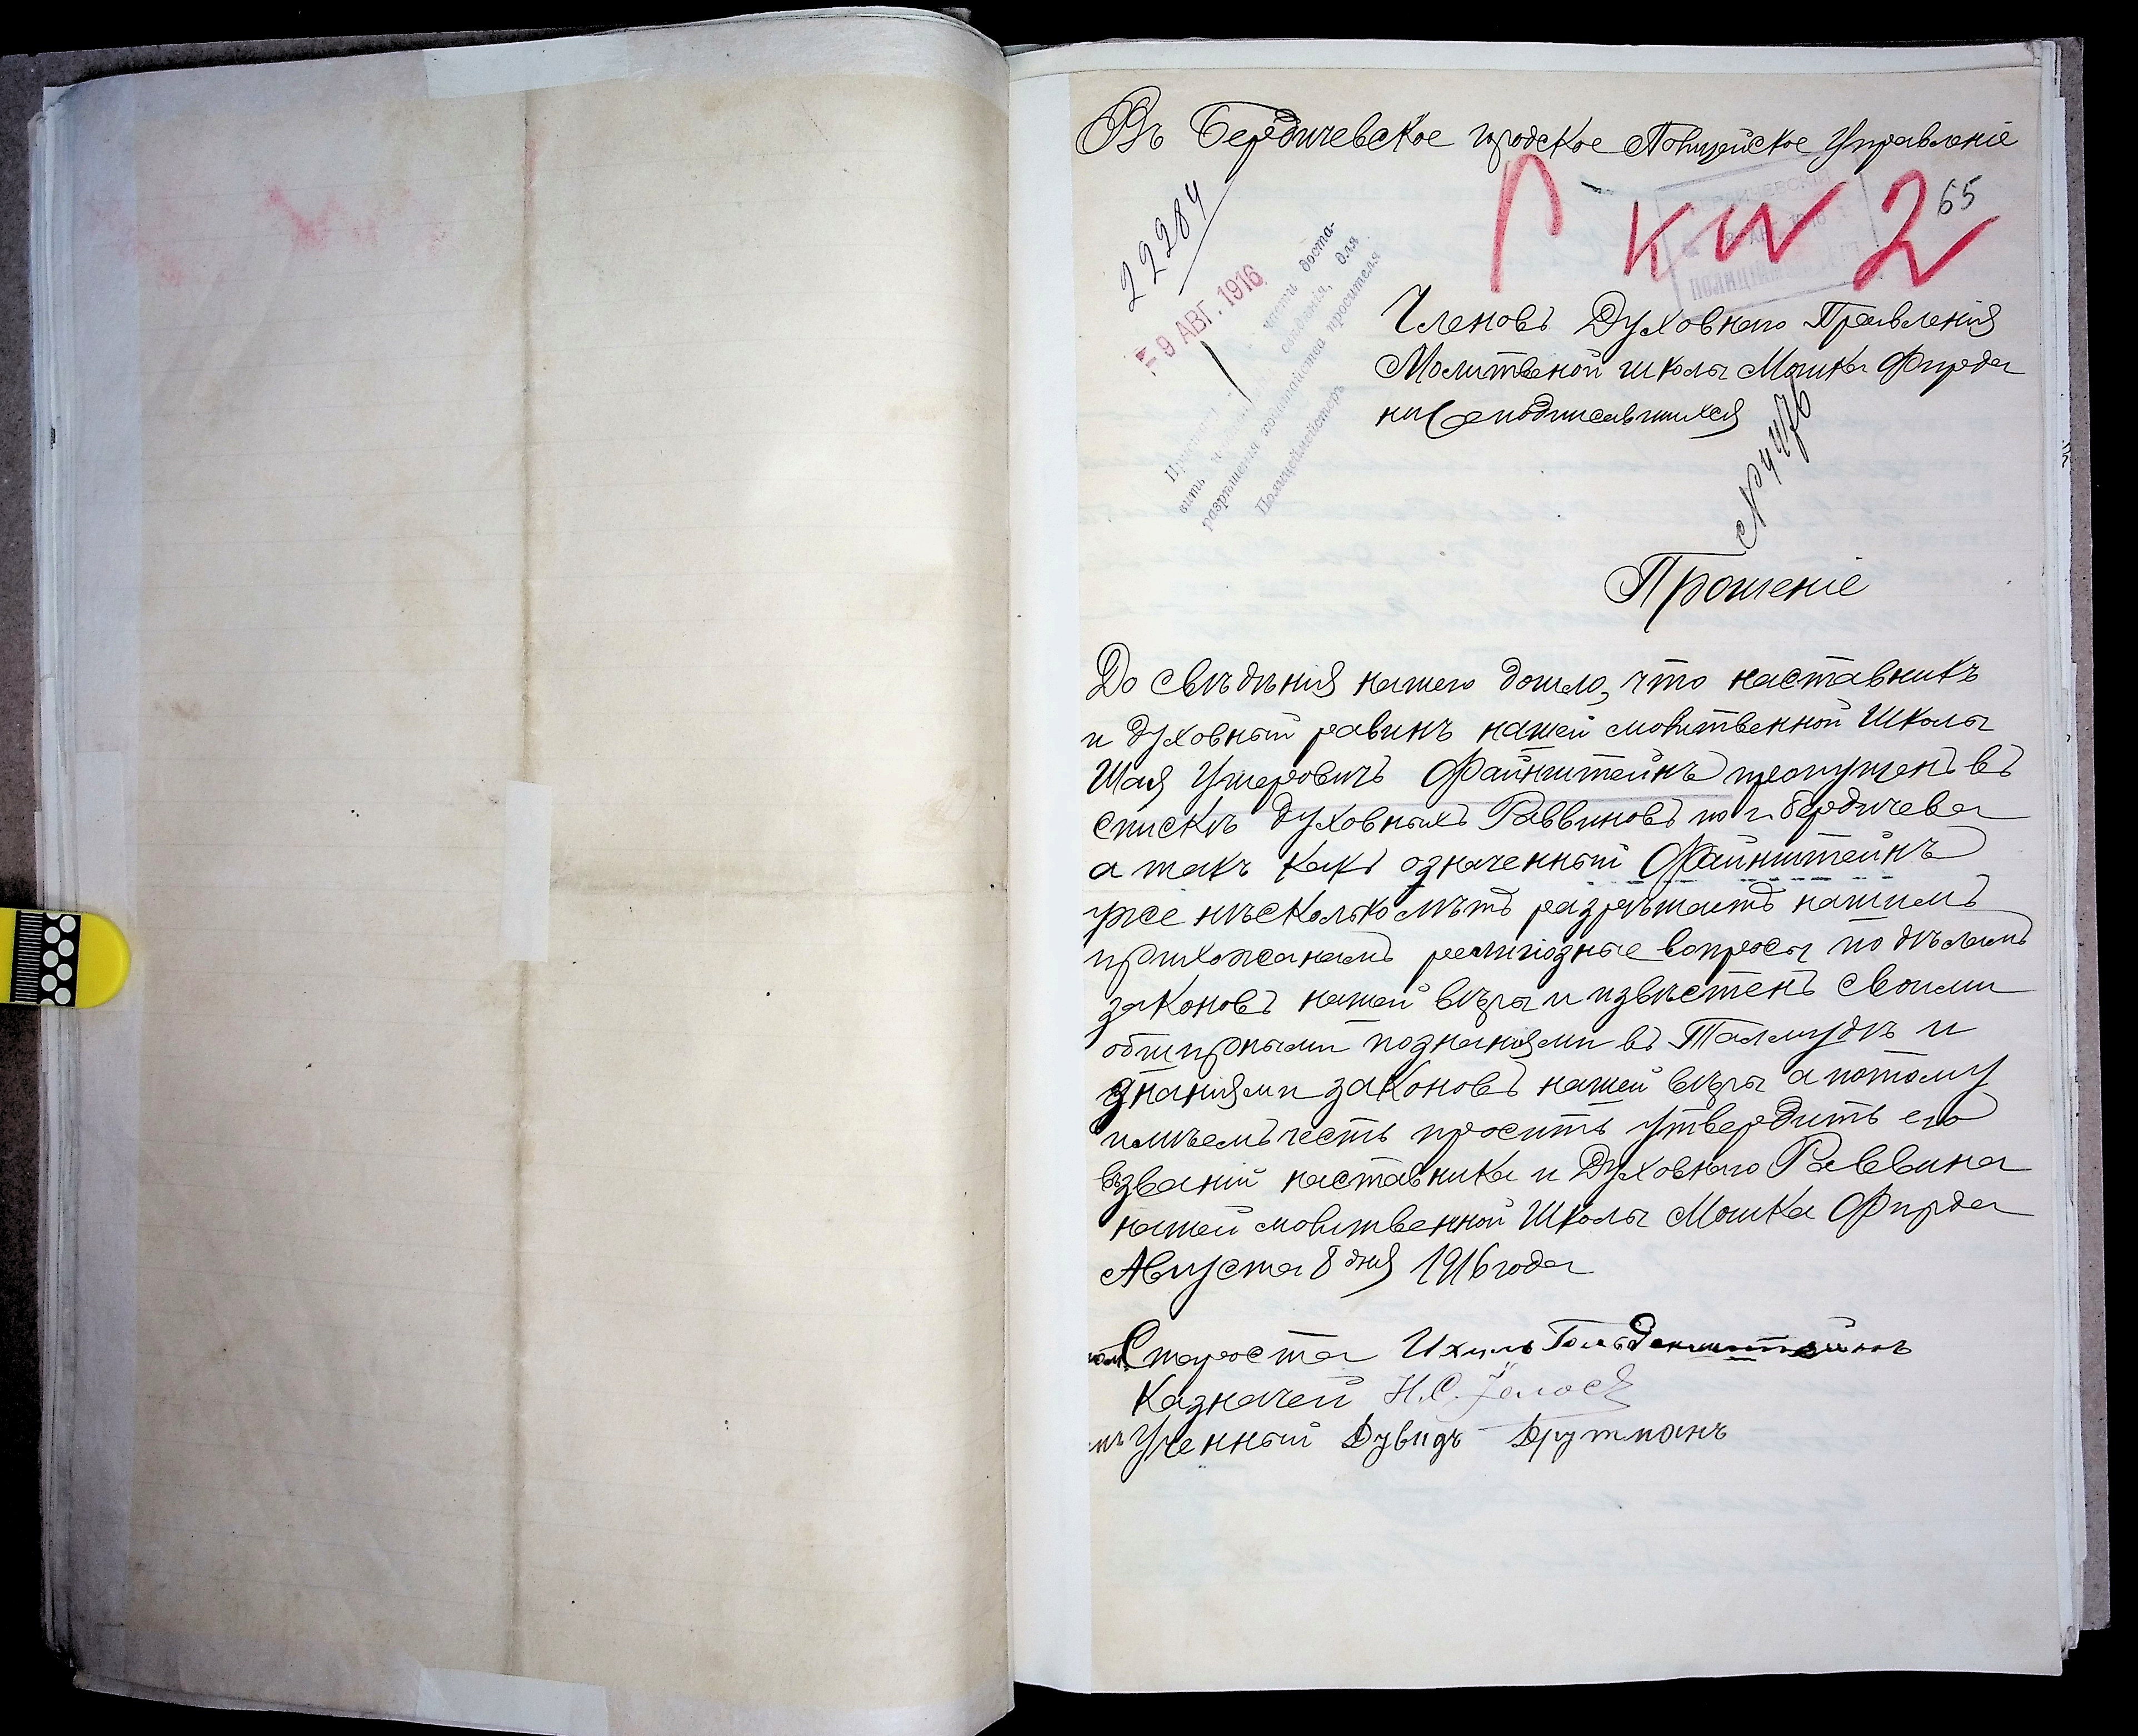 Въ Бердичевское городское Полицейское Управленіе
65
22284
- 9 АВГ. 1916
части доста-
вить и
свѣдѣнія, для
разрѣшенія ходатайства просителя
Полицеймейстеръ
Членовъ Духовнаго Правленія
Молитвеной школы Мошка Фирда
ниже подписавшихся
№ 4476
Прошеніе
До свѣдѣнія нашего дошло, что наставникъ
и духовный равинъ нашей молитвенной Школы
Шая Ушеровичъ Файнштейнъ пропущенъ въ
спискѣ духовныхъ Раввиновъ по г. Бердичева
а такъ какъ означенный Файнштейнъ
уже нѣсколько лѣтъ разрѣшаетъ нашимъ
прихожанамъ религіозные вопросы по дѣламъ
законовъ нашей вѣры и извѣстенъ своими
обширными познаніями въ Талмудѣ и
знаніями законовъ нашей вѣры а потому
имѣемъ честь просить утвердить его
въ званіи наставника и Духовнаго Раввина
нашей молитвенной Школы Мошка Фирда
Августа 8 дня 1916 года
Староста Ихиль Гольденштейнъ
Казначей Н.С.
Ученный Дувидъ Друтманъ